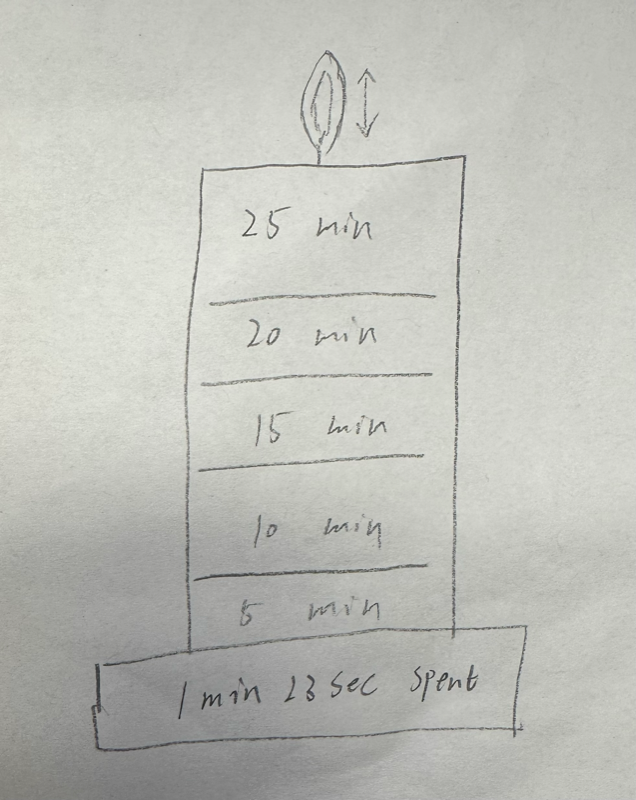 25 min
20 min
15 min
10 min
5 min
1 min 23 sec spent